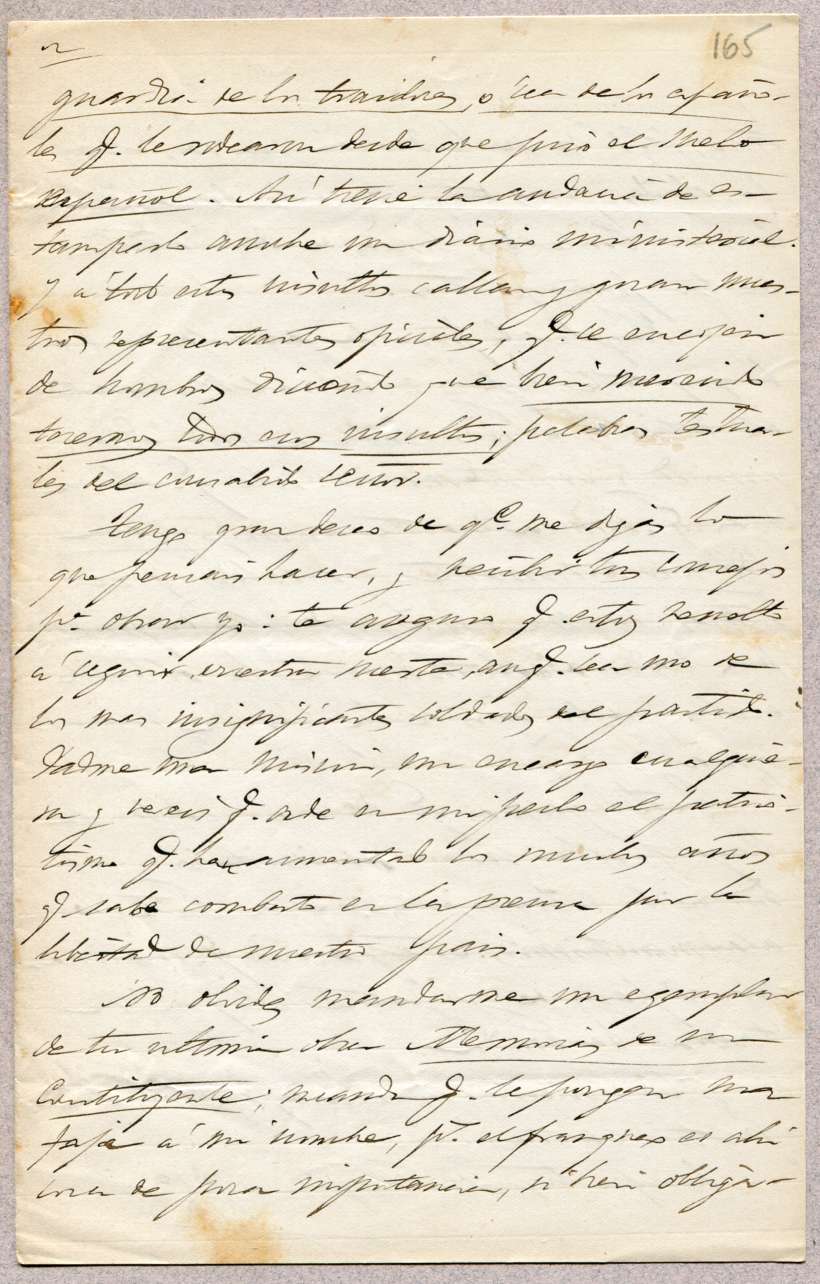 2
165
guardia de los traidores, ó sea de los españo-
les q. le rodearon desde que pisó el suelo
español. Así tiene la audacia de es-
tamparlo anoche un diario ministerial.
y á todo estos insultos callan y gozan nues-
tros representantes oficiales, q. se encojen
de hombros diciendo que bien merecido
tenemos todos esos insultos; palabras testua-
les del consabido señor.
Tengo gran deseo de q.e me digas lo
que pensais hacer, y recibir tus consejos
p.a obrar yo: te aseguro q. estoy resuelto
á seguir vuestra suerte, aunq. sea uno de
los mas insignificantes soldados del partido.
Dadme una mision, un encargo cualquie-
ra y vereis q. arde en mi pecho el patrio-
tismo q. ha alimentado los muchos años
q. sabe combato en la prensa por la
libertad de nuestro pais.
No olvides mandarme un egemplar
de tu ultima obra Memorias de un
Constituyente; manda q. le pongan una
faja á mi nombre, p.s el franqueo es ahi
cosa de poca importancia, si bien obliga-